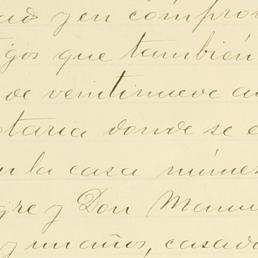 y en compro
tigos que también
de veintinueve a
otaria donde se e
en la casa núme
gre y Don Manu
y un años, casado